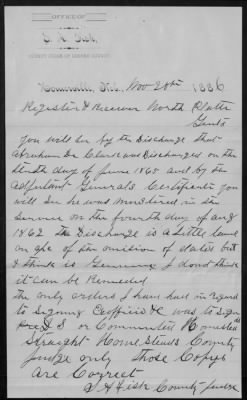 OFFICE OF
Homerville, Neb., Nov 20th 1886
Register & Receiver North Platte
Gents
you will see by the Discharge that
Abraham De Clark was Discharged on the
tenth day of June 1865 and by the
Adjutant Generals Certificate you
will see he was mustered in the
Service on the fourth day of Aug
1862 The Discharge is a Little lame
on a/c of the omision of dates but
I think is Genuine I dont think
it can be Remedied
The only orders I have had in regard
to signing Ex officio &c was to sign
Pre or Commuted Homestead
Straight Homesteads County
Judge only those Copys
are Correct
A H Fisk County Judge